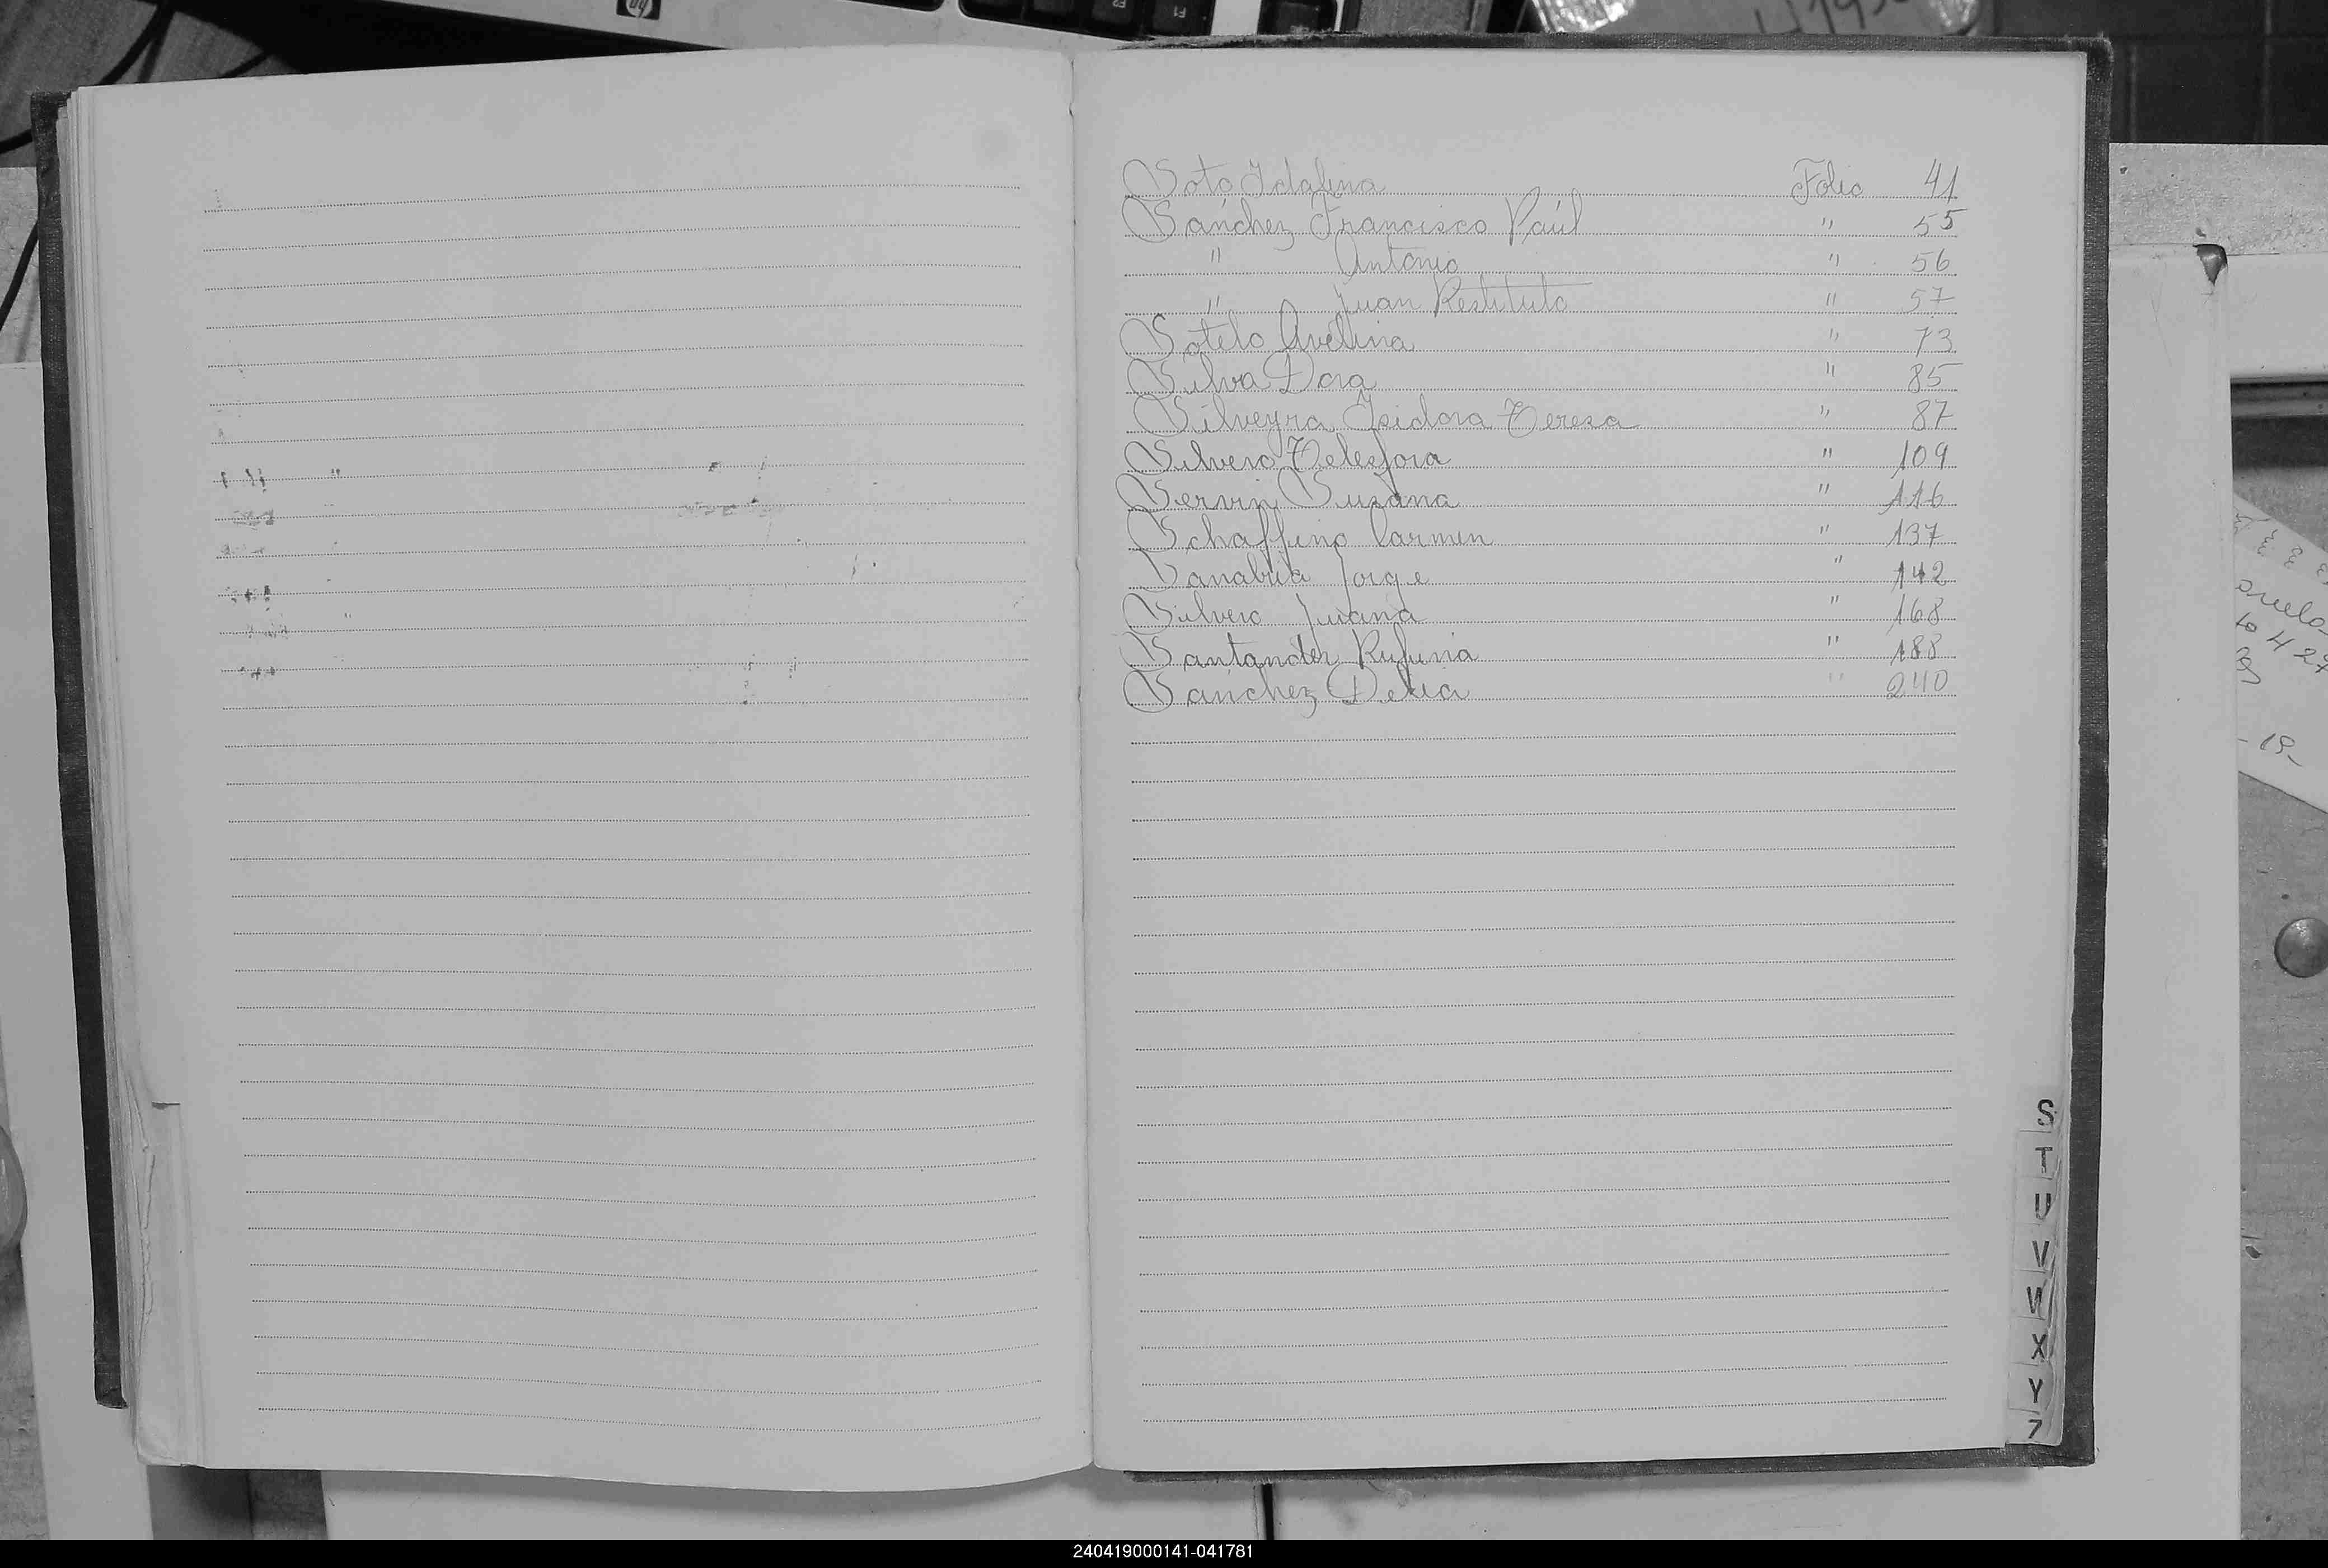 Soto Idalina Folio 41
Sánchez Francisco Raúl " 55
" Antonio " 56
" Juan Restituto " 57
Sotelo Avelina " 73
Silva Dora " 85
Silveyra Isidora Teresa " 87
Silvero Telesfora " 109
Servin Susana " 116
Schaffino Carmen " 137
Sanabria Jorge " 142
Silvero Juana " 168
Santander Rufina " 188
Sánchez Delia " 240
S
T
U
V
W
X
Y
Z
240419000141-041781